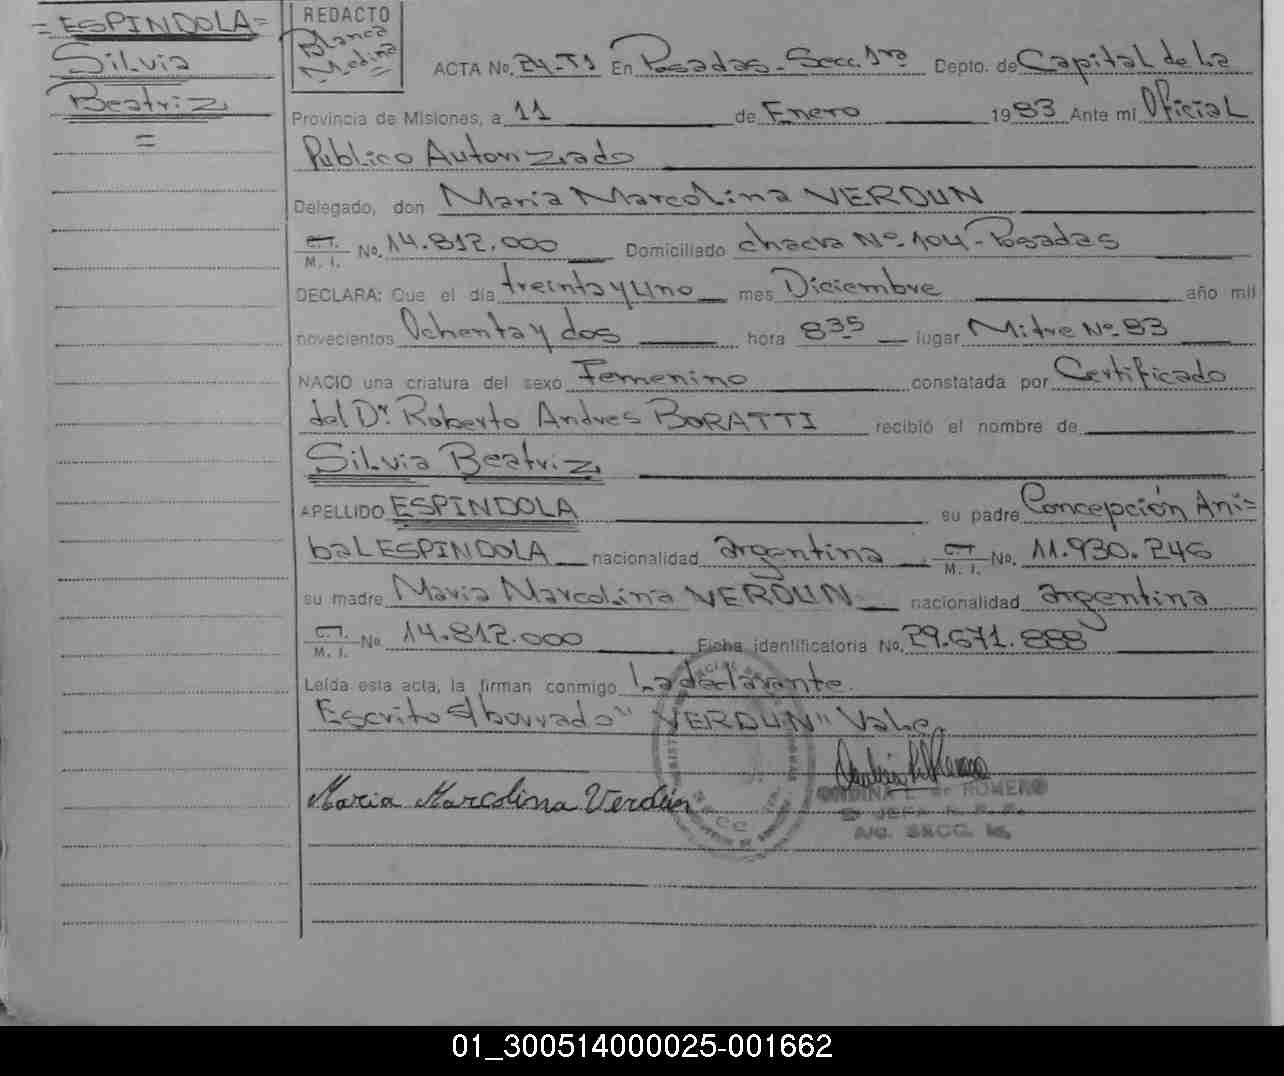 = ESPINDOLA =
Silvia
Beatriz
=
REDACTO
Blanca
Medina
ACTA No. 24-T1 En Posadas - Secc. 1ra Depto. de Capital de la
Provincia de Misiones, a 11 de Enero 1983 Ante mi Oficial
Publico Autorizado
Delegado, don Maria Marcolina VERDUN
C.I. M. I. No. 14.812.000 Domiciliado chacra Nº 104 - Posadas
DECLARA: Que el día treinta y uno mes Diciembre año mil
novecientos Ochenta y dos hora 8.35 lugar Mitre Nº 83
NACIO una criatura del sexo Femenino constatada por Certificado
del Dr. Roberto Andres BORATTI recibió el nombre de
Silvia Beatriz
APELLIDO ESPINDOLA su padre Concepción Aní=
bal ESPINDOLA nacionalidad argentina C.I. M. I. No. 11.930.246
su madre Maria Marcolina VERDUN nacionalidad argentina
C.I. M. I. No. 14.812.000 Ficha identificatoria No. 29.671.888
Leída esta acta, la firman conmigo La declarante.
Escrito s/ borrado "VERDUN" Vale
Maria Marcolina Verdún
ONDINA E. de ROMERO
JEFA
A/C. SECC. 1a.
01_300514000025-001662